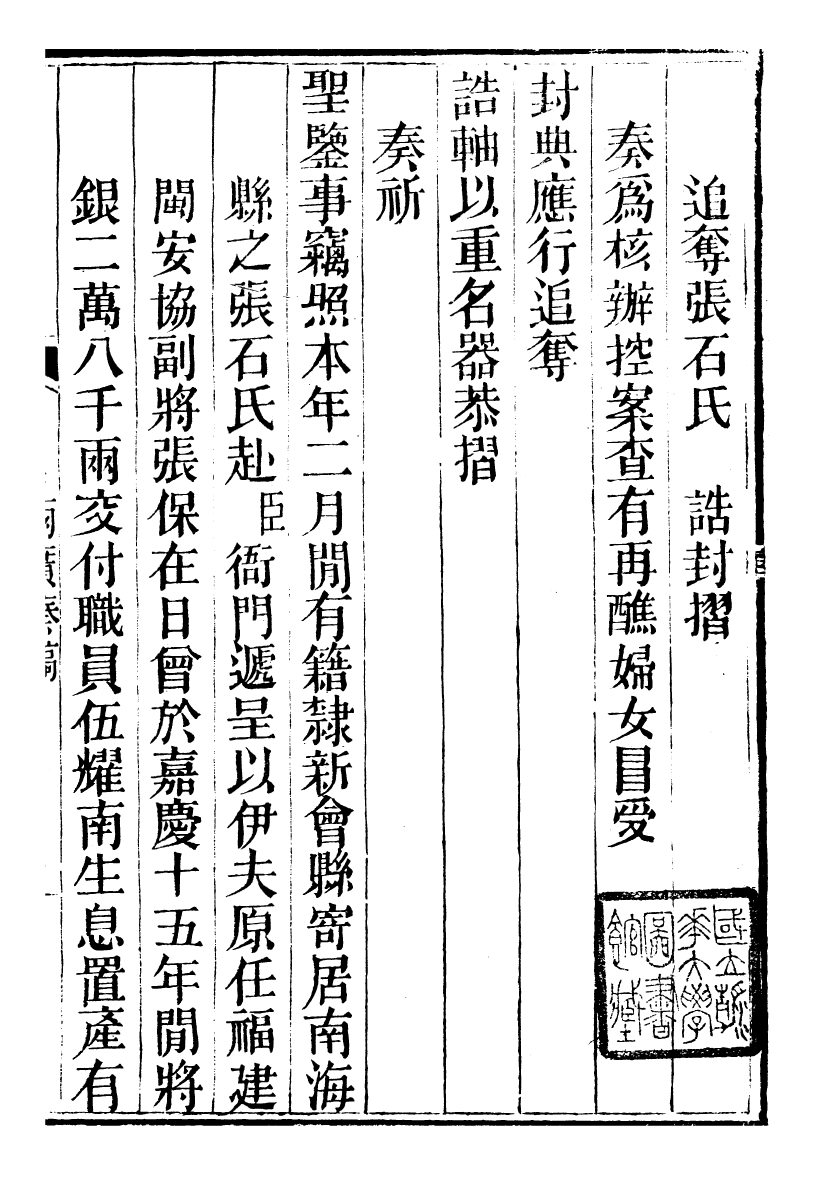 追奪張石氏　誥封摺
奏爲核辦控案查有再醮婦女冒受
封典應行追奪
誥軸以重名器恭摺
奏祈
聖鑒事竊照本年二月閒有籍隸新會縣寄居南海
縣之張石氏赴臣衙門遞呈以伊夫原任福建
閩安協副將張保在日曾於嘉慶十五年閒將
銀二萬八千兩交付職員伍耀南生息置產有
兩廣奏稿
國立清華大學圖書館藏